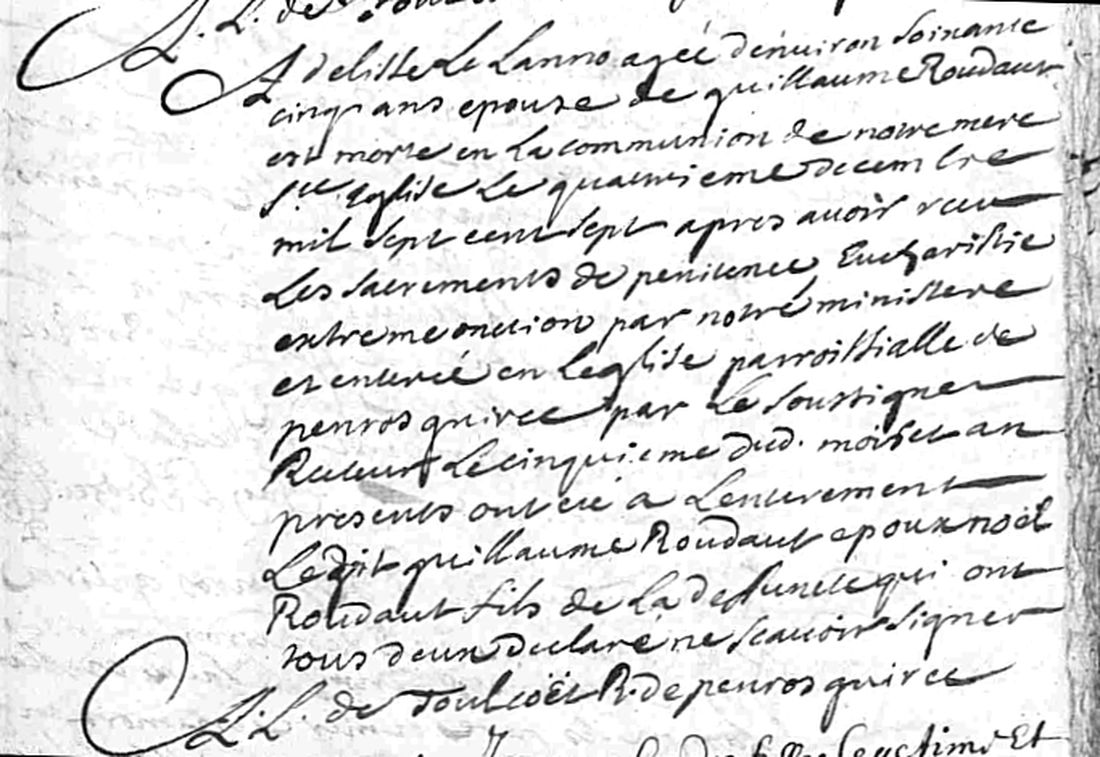 A. L. de
Adelisse Le Lanno agée denuiron soixante
cinq ans epouse de guillaume Roudaut
est morte en La communion de notre mere
ste Eglise Le quatrieme decembre
mil sept cent sept apres auoir receu
Les sacrements de penitence Eucharistie
extreme onction par notre ministere
et enterré en Leglise parroissialle de
penrosguirec par Le soussigner
Recteur Le cinquieme dud. mois et an
presents ont été a Lenterement
Ledit guillaume Roudaut epoux noël
Roudaut fils de La deffuncte qui ont
tous deux declaré ne scauoir signer
A. L. de Toulcoët R. de penrosguirec
Et